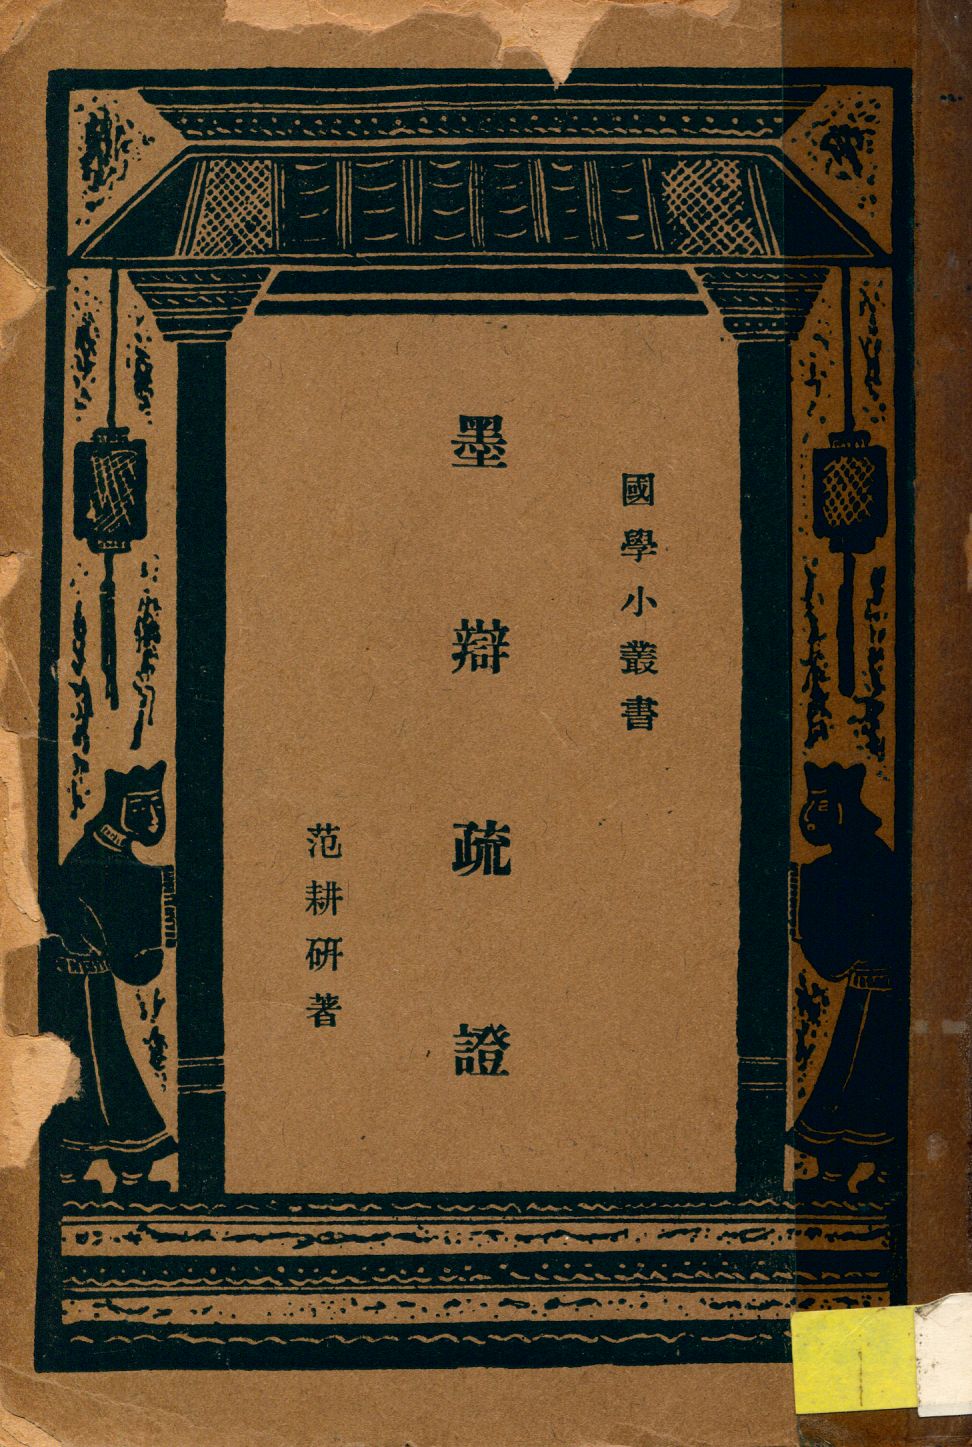 國學小叢書
墨辯疏證
范耕研著